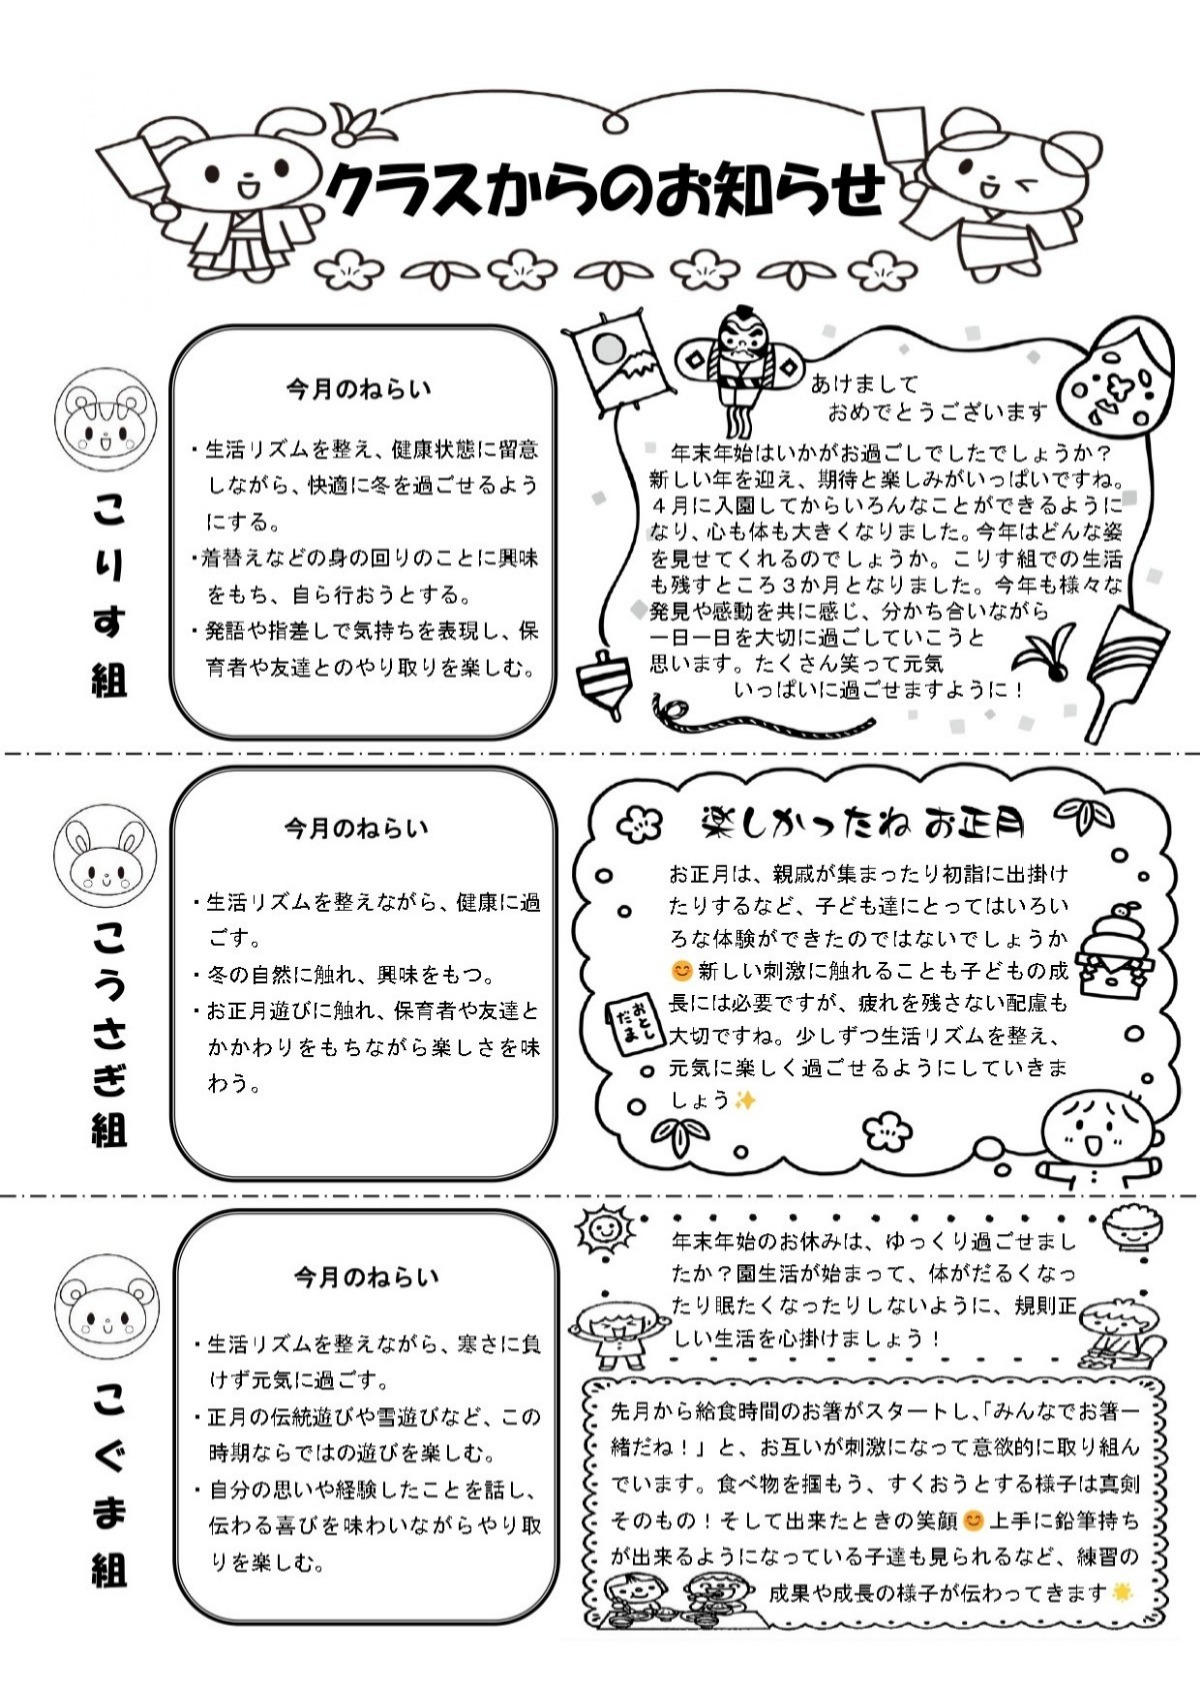 クラスからのお知らせ
こりす組
今月のねらい
・生活リズムを整え、健康状態に留意
しながら、快適に冬を過ごせるよう
にする。
・着替えなどの身の回りのことに興味
をもち、自ら行おうとする。
・発語や指差しで気持ちを表現し、保
育者や友達とのやり取りを楽しむ。
あけまして
おめでとうございます
年末年始はいかがお過ごしでしたでしょうか？
新しい年を迎え、期待と楽しみがいっぱいですね。
４月に入園してからいろんなことができるように
なり、心も体も大きくなりました。今年はどんな姿
を見せてくれるのでしょうか。こりす組での生活
も残すところ３か月となりました。今年も様々な
発見や感動を共に感じ、分かち合いながら
一日一日を大切に過ごしていこうと
思います。たくさん笑って元気
いっぱいに過ごせますように！
こうさぎ組
今月のねらい
・生活リズムを整えながら、健康に過
ごす。
・冬の自然に触れ、興味をもつ。
・お正月遊びに触れ、保育者や友達と
かかわりをもちながら楽しさを味
わう。
楽しかったね お正月
お正月は、親戚が集まったり初詣に出掛け
たりするなど、子ども達にとってはいろい
ろな体験ができたのではないでしょうか
😊新しい刺激に触れることも子どもの成
長には必要ですが、疲れを残さない配慮も
大切ですね。少しずつ生活リズムを整え、
元気に楽しく過ごせるようにしていきま
しょう✨
おとし
だま
こぐま組
今月のねらい
・生活リズムを整えながら、寒さに負
けず元気に過ごす。
・正月の伝統遊びや雪遊びなど、この
時期ならではの遊びを楽しむ。
・自分の思いや経験したことを話し、
伝わる喜びを味わいながらやり取
りを楽しむ。
年末年始のお休みは、ゆっくり過ごせまし
たか？園生活が始まって、体がだるくなっ
たり眠たくなったりしないように、規則正
しい生活を心掛けましょう！
先月から給食時間のお箸がスタートし、「みんなでお箸一
緒だね！」と、お互いが刺激になって意欲的に取り組ん
でいます。食べ物を掴もう、すくおうとする様子は真剣
そのもの！そして出来たときの笑顔😊上手に鉛筆持ち
が出来るようになっている子達も見られるなど、練習の
成果や成長の様子が伝わってきます🌟